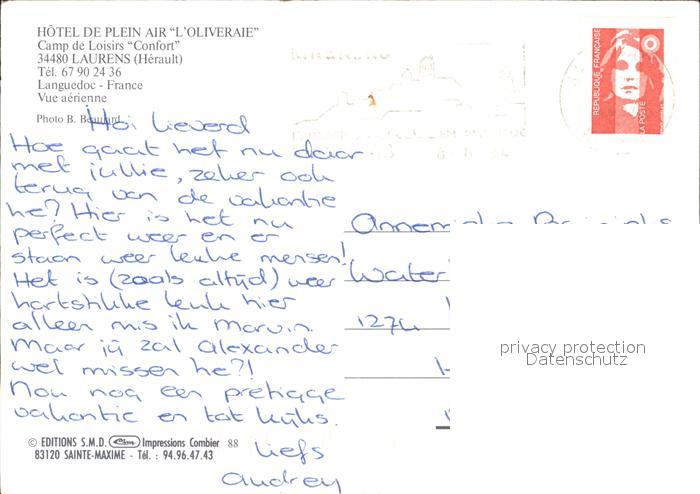 HÔTEL DE PLEIN AIR “L’OLIVERAIE”
Camp de Loisirs “Confort”
34480 LAURENS (Hérault)
Tél. 67 90 24 36
Languedoc - France
Vue aérienne
Photo B. Beaujard
Hoi lieverd
Hoe gaat het nu daar
met jullie, zeker ook
terug van de vakantie
he? Hier is het nu
perfect weer en er
staan weer leuke mensen!
Het is (zoals altijd) weer
hartstikke leuk hier
alleen mis ik Marvin.
Maar jij zal Alexander
wel missen he?!
Nou nog een prettige
vakantie en tot kijks.
liefs
Audrey
© EDITIONS S.M.D. Impressions Combier 88
83120 SAINTE-MAXIME - Tél. : 94.96.47.43
REPUBLIQUE FRANÇAISE
LA POSTE
Water
privacy protection
Datenschutz